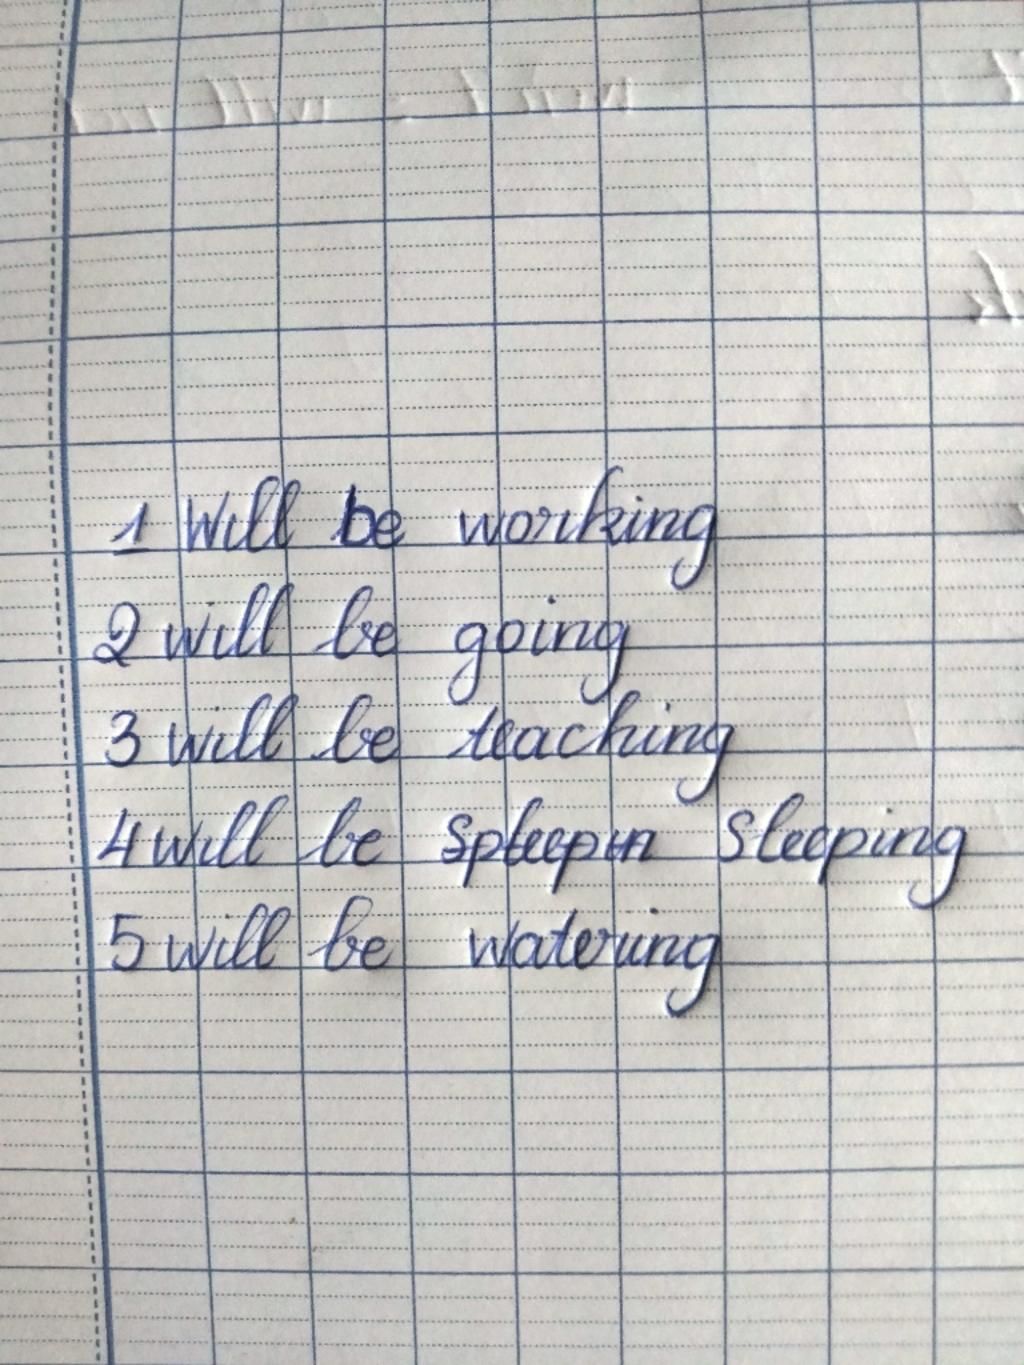 1 Will be working
2 will be going
3 will be teaching
4 will be Spleepin Sleeping
5 will be watering